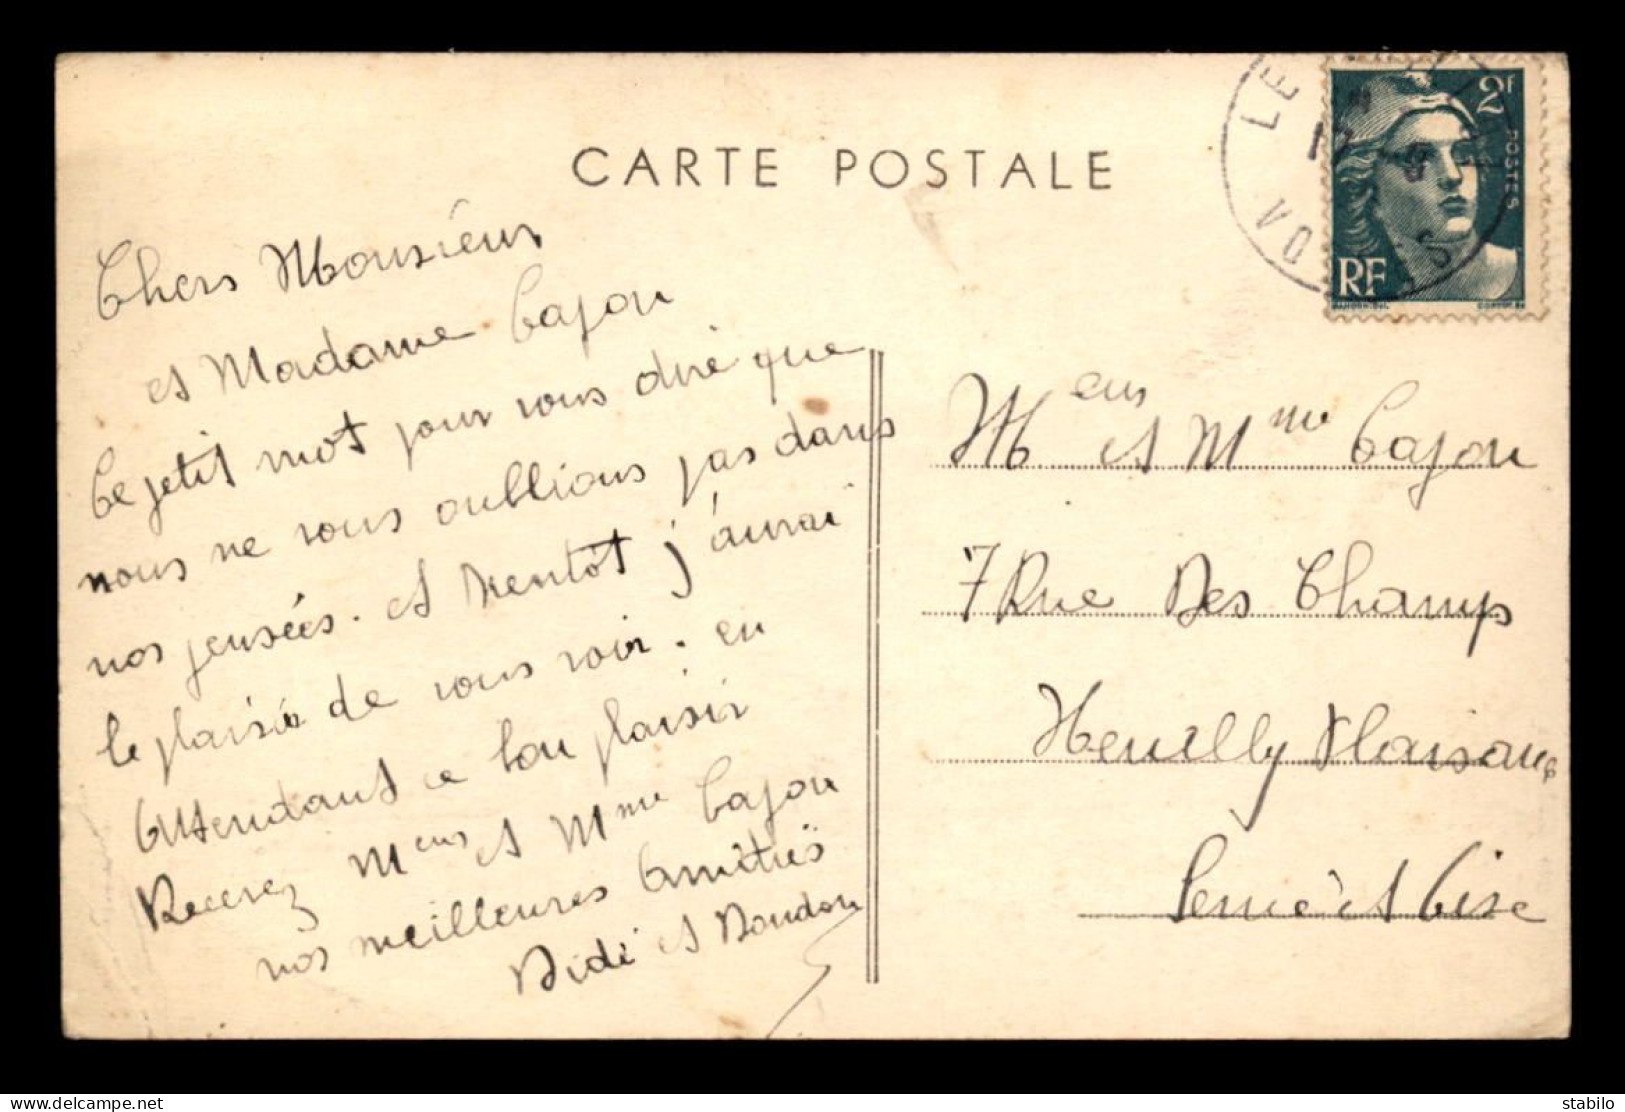 CARTE POSTALE
Chers Monsieur
et Madame Cajou
Ce petit mot pour vous dire que
nous ne vous oublions pas dans
nos pensées. et Bientôt j'aurai
le plaisir de vous voir. en
Attendant ce bon plaisir
Recevez Meur et Mme Cajou
nos meilleures Amitiés
Didi et Doudou
LE
VOSGES
2f
POSTES
RF
Meur et Mme Cajou
7 Rue Des Champs
Neuilly Plaisance
Seine et Oise
Delcampe.net
stabilo